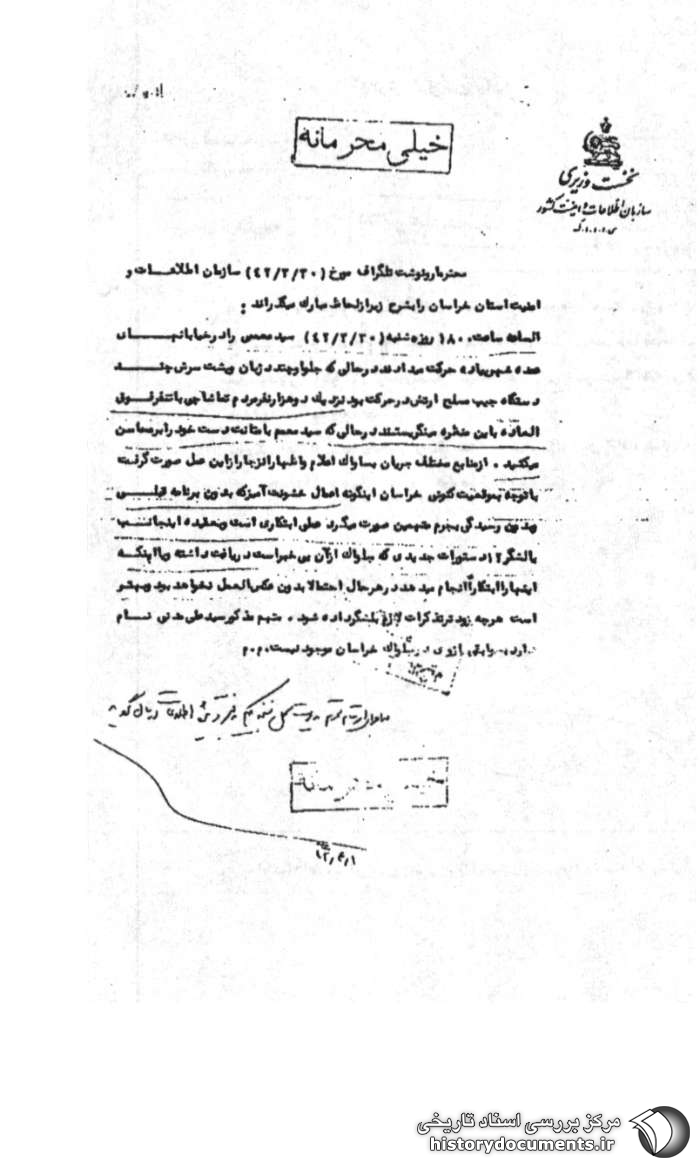 خیلی محرمانه
نخست وزیری
سازمان اطلاعات و امنیت کشور
محترما رونوشت تلگراف مورخ (۴۲/۳/۳۰) سازمان اطلاعات و
امنیت استان خراسان را بشرح زیر از لحاظ مبارک میگذراند :
الساعه ساعت ۱۸۰۰ روز شنبه (۴۲/۳/۳۰) سید معممی را در خیابانهای
عمده شهر پیاده حرکت میدادند در حالی که جلو او چند دژبان و پشت سرش چند
دستگاه جیپ مسلح ارتش در حرکت بود نزدیک دو هزار نفر مردم تماشاچی با تنفر فوق
العاده باین منظره مینگریستند در حالی که سید معمم با متانت دست خود را بر محاسن
میکشید . از منابع مختلف جریان بساواک اعلام و اظهار انزجار از این عمل صورت گرفت
با توجه بموقعیت کنونی خراسان اینگونه اعمال خشونت آمیز که بدون برنامه قبلی
وبدون رسیدگی بجرم متهمین صورت میگیرد عملی ابتکاری است وبعقیده اینجانب
یا لشگر ۱۲ دستورات جدیدی که ساواک از آن بی خبر است دریافت داشته ویا اینکه
اینها را ابتکارا انجام میدهد در هر حال احتمالا بدون عکس العمل نخواهد بود وبهتر
است هرچه زودتر تذکرات لازم بلشگر داده شود . متهم مذکور سید علی نام
دارد سوابقی از وی در ساواک خراسان موجود نیست.م.م
خیلی محرمانه
مرکز بررسی اسناد تاریخی
historydocuments.ir